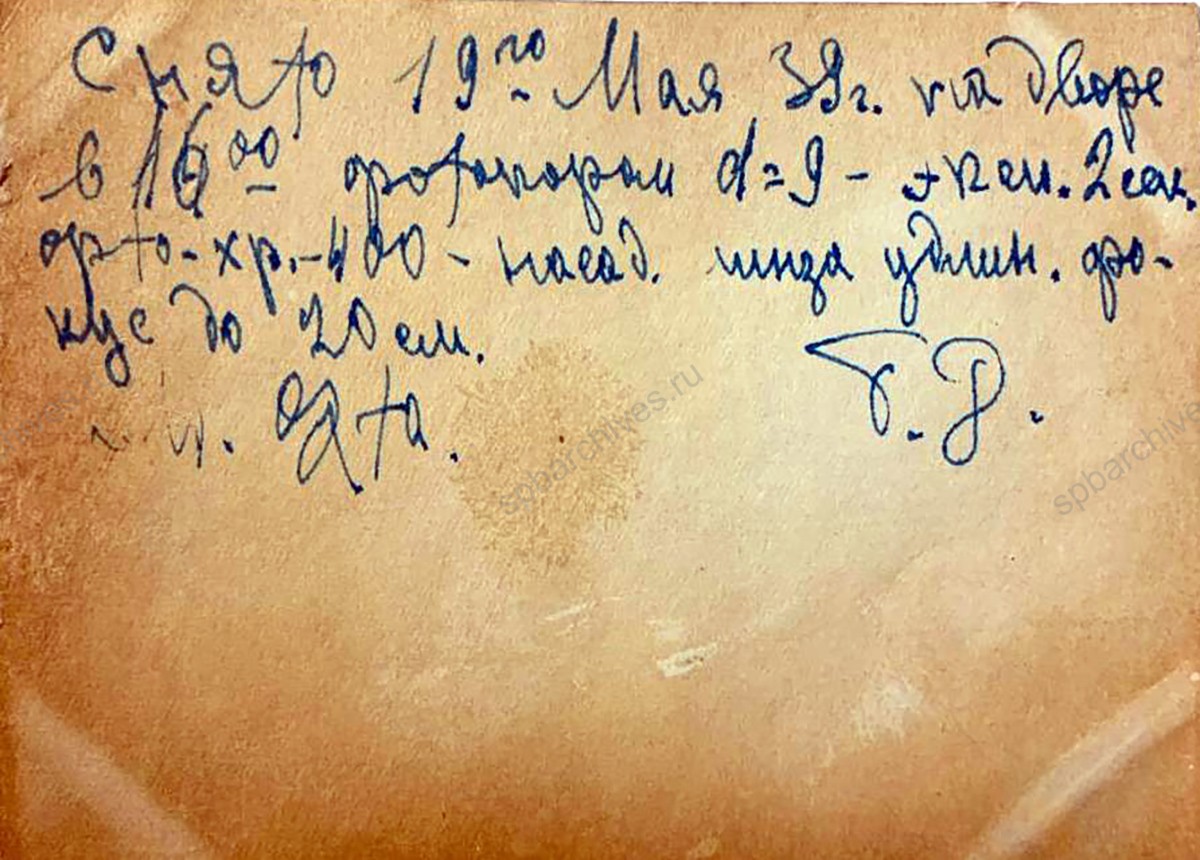 Снято 19го Мая 39г. на дворе
в 1600 фотокором d=9 - экси. 2 сек.
орто-хр.-400 - насад. линза удлин. фо-
кус до 20 см.
Г.Р.
Ята.
spbarchives.ru